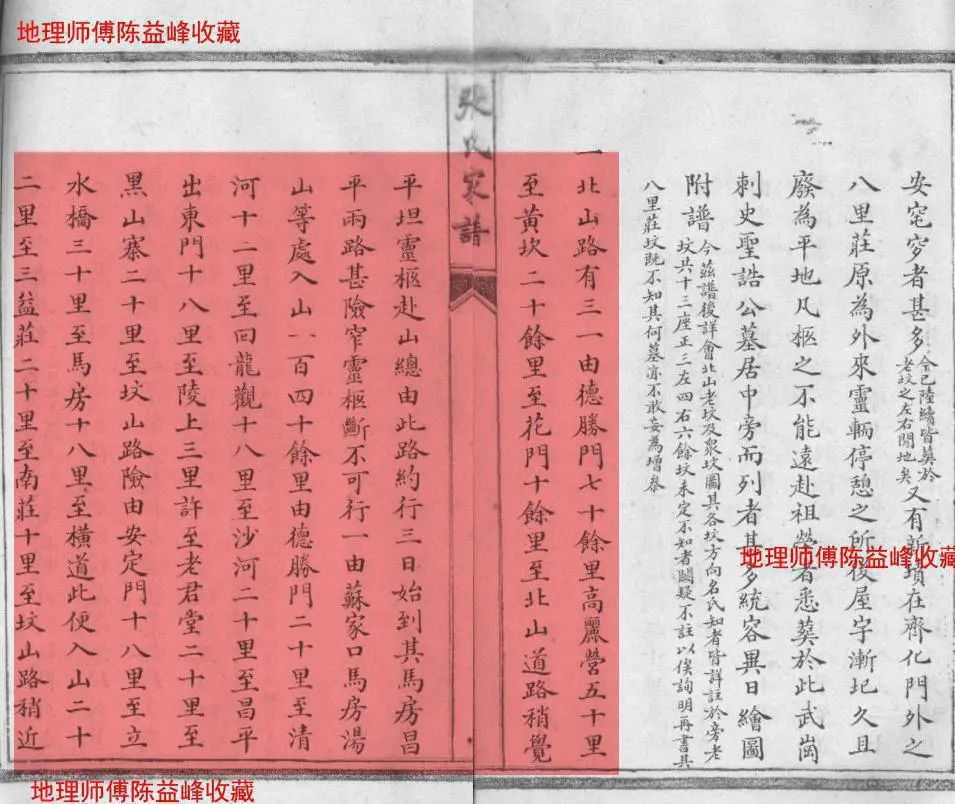 地理师傅陈益峰收藏
安窀穸者甚多今已陸續皆葬於老坟之左右閒地矣又有新塋在齊化門外之
八里莊原為外來靈輛停憩之所後屋宇漸圯久且
廢為平地凡柩之不能遠赴祖塋者悉葬於此武崗
刺史聖誥公墓居中旁而列者甚多統容異日繪圖
附譜今茲譜後詳會北山老坟及衆坟圖其各坟方向名氏知者皆詳註於旁老
坟共十三座正三左四右六餘坟未定不知者闕疑不註以俟詢明再書其
八里莊坟既不知其何墓亦不敢妄為增叅
一北山路有三一由德勝門七十餘里高麗營五十里
至黃坎二十餘里至花門十餘里至北山道路稍覺
張氏家譜
平坦靈柩赴山總由此路約行三日始到其馬房昌
平兩路甚險窄靈柩斷不可行一由蘇家口馬房湯
山等處入山一百四十餘里由德勝門二十里至清
河十二里至回龍觀十八里至沙河二十里至昌平
出東門十八里至陵上三里許至老君堂二十里至
黑山寨二十里至坟山路險由安定門十八里至立
水橋三十里至馬房十八里至橫道此便入山二十
二里至三益莊二十里至南莊十里至坟山路稍近
地理师傅陈益峰收藏
地理师傅陈益峰收藏